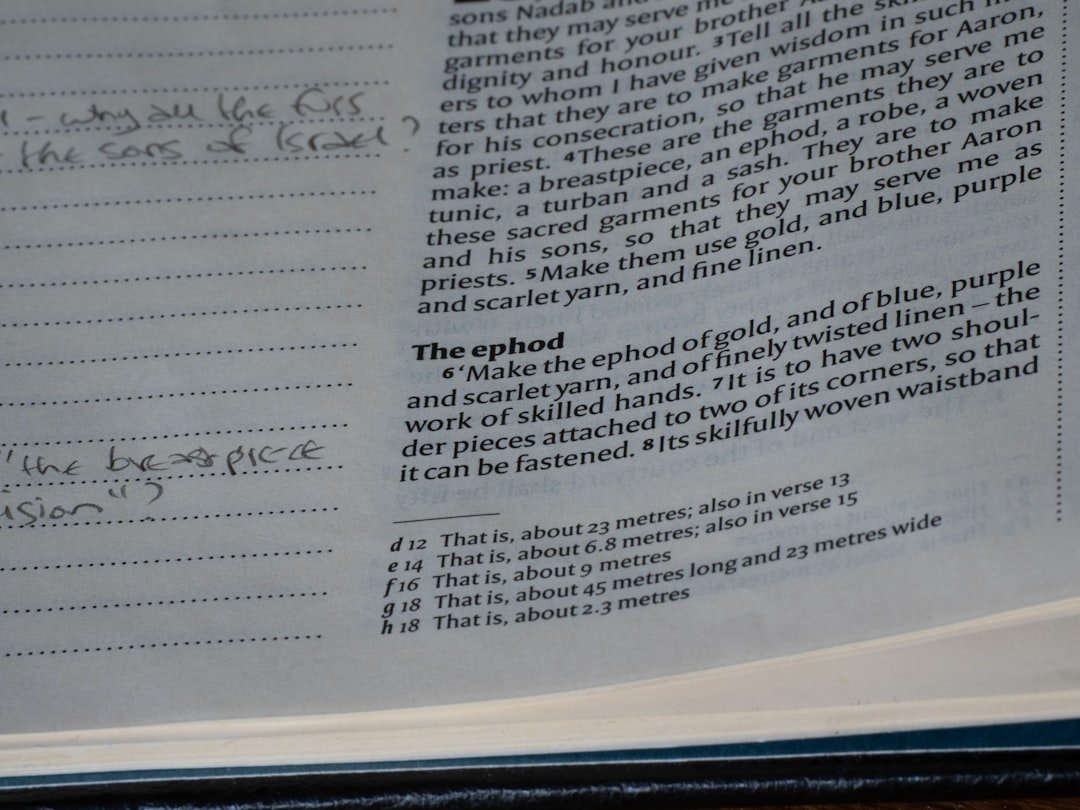 - why all the
the sons of Israel?
"the breastpiece
sons Nadab and
that they may serve me
garments for your brother
dignity and honour. 3Tell all the
ers to whom I have given wisdom in such
ters that they are to make garments for Aaron,
for his consecration, so that he may serve me
as priest. 4These are the garments they are to
make: a breastpiece, an ephod, a robe, a woven
tunic, a turban and a sash. They are to make
these sacred garments for your brother Aaron
and his sons, so that they may serve me as
priests. 5Make them use gold, and blue, purple
and scarlet yarn, and fine linen.
The ephod
6‘Make the ephod of gold, and of blue, purple
and scarlet yarn, and of finely twisted linen – the
work of skilled hands. 7It is to have two shoul-
der pieces attached to two of its corners, so that
it can be fastened. 8Its skilfully woven waistband
d 12 That is, about 23 metres; also in verse 13
e 14 That is, about 6.8 metres; also in verse 15
f 16 That is, about 9 metres
g 18 That is, about 45 metres long and 23 metres wide
h 18 That is, about 2.3 metres